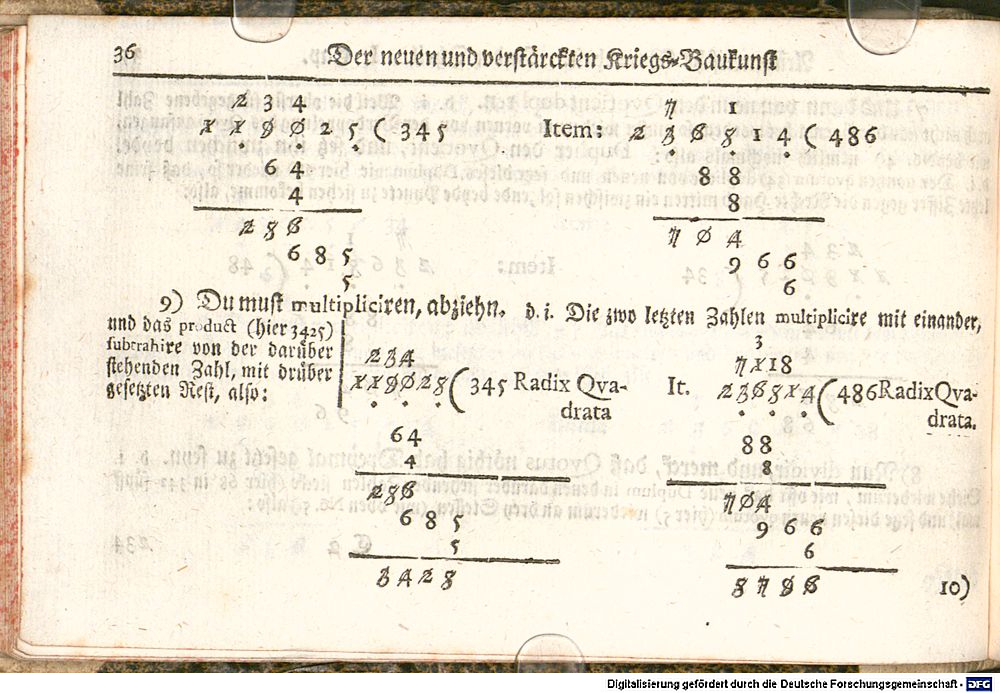 36 Der neuen und verstärckten Kriegs-Baukunst
2 3 4
1 1 9 0 2 5 ( 345
6 4
4
2 5 6
6 8 5
5
7 1
Item: 2 3 6 5 1 4 ( 486
8 8
8
7 0 4
9 6 6
6
9) Du must multipliciren, abziehn. d. i. Die zwo letzten Zahlen multiplicire mit einander,
und das product (hier 3425)
subtrahire von der darüber
stehenden Zahl, mit drüber
gesetzten Rest, also:
234
119025 ( 345 Radix Qva-
drata
64
4
256
685
5
3425
3
7118
It. 236514 ( 486 Radix Qva-
drata.
88
8
704
966
6
5796
10)
Digitalisierung gefördert durch die Deutsche Forschungsgemeinschaft - DFG